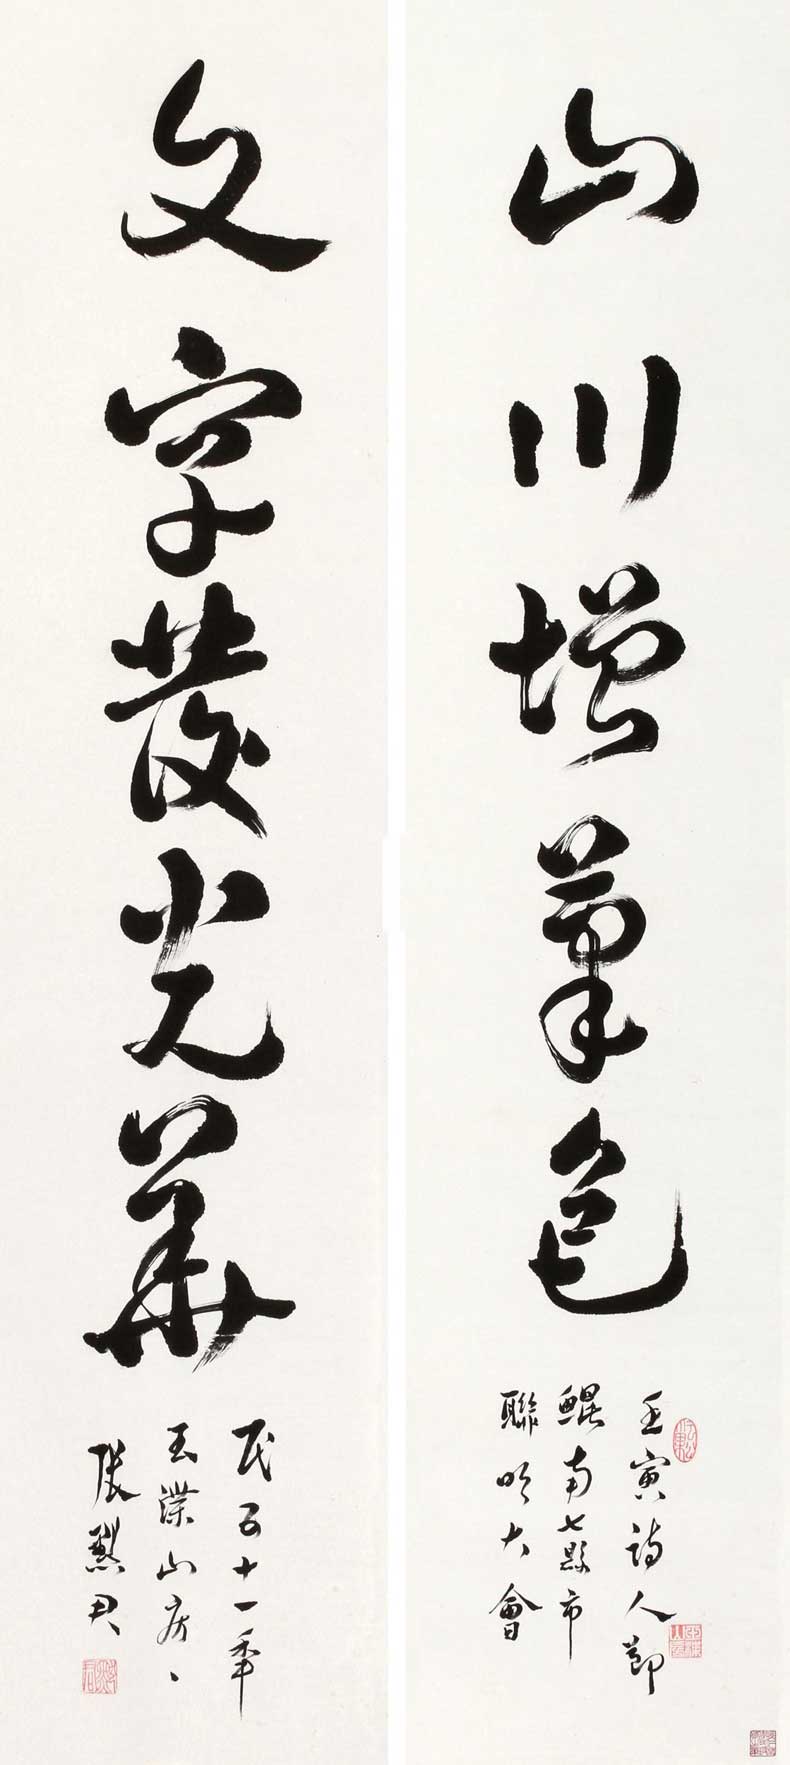 山川增筆色
壬寅詩人節
鯤南七縣市
聯吟大會
文字發光華
民五十一年
玉漈山房、
張默君